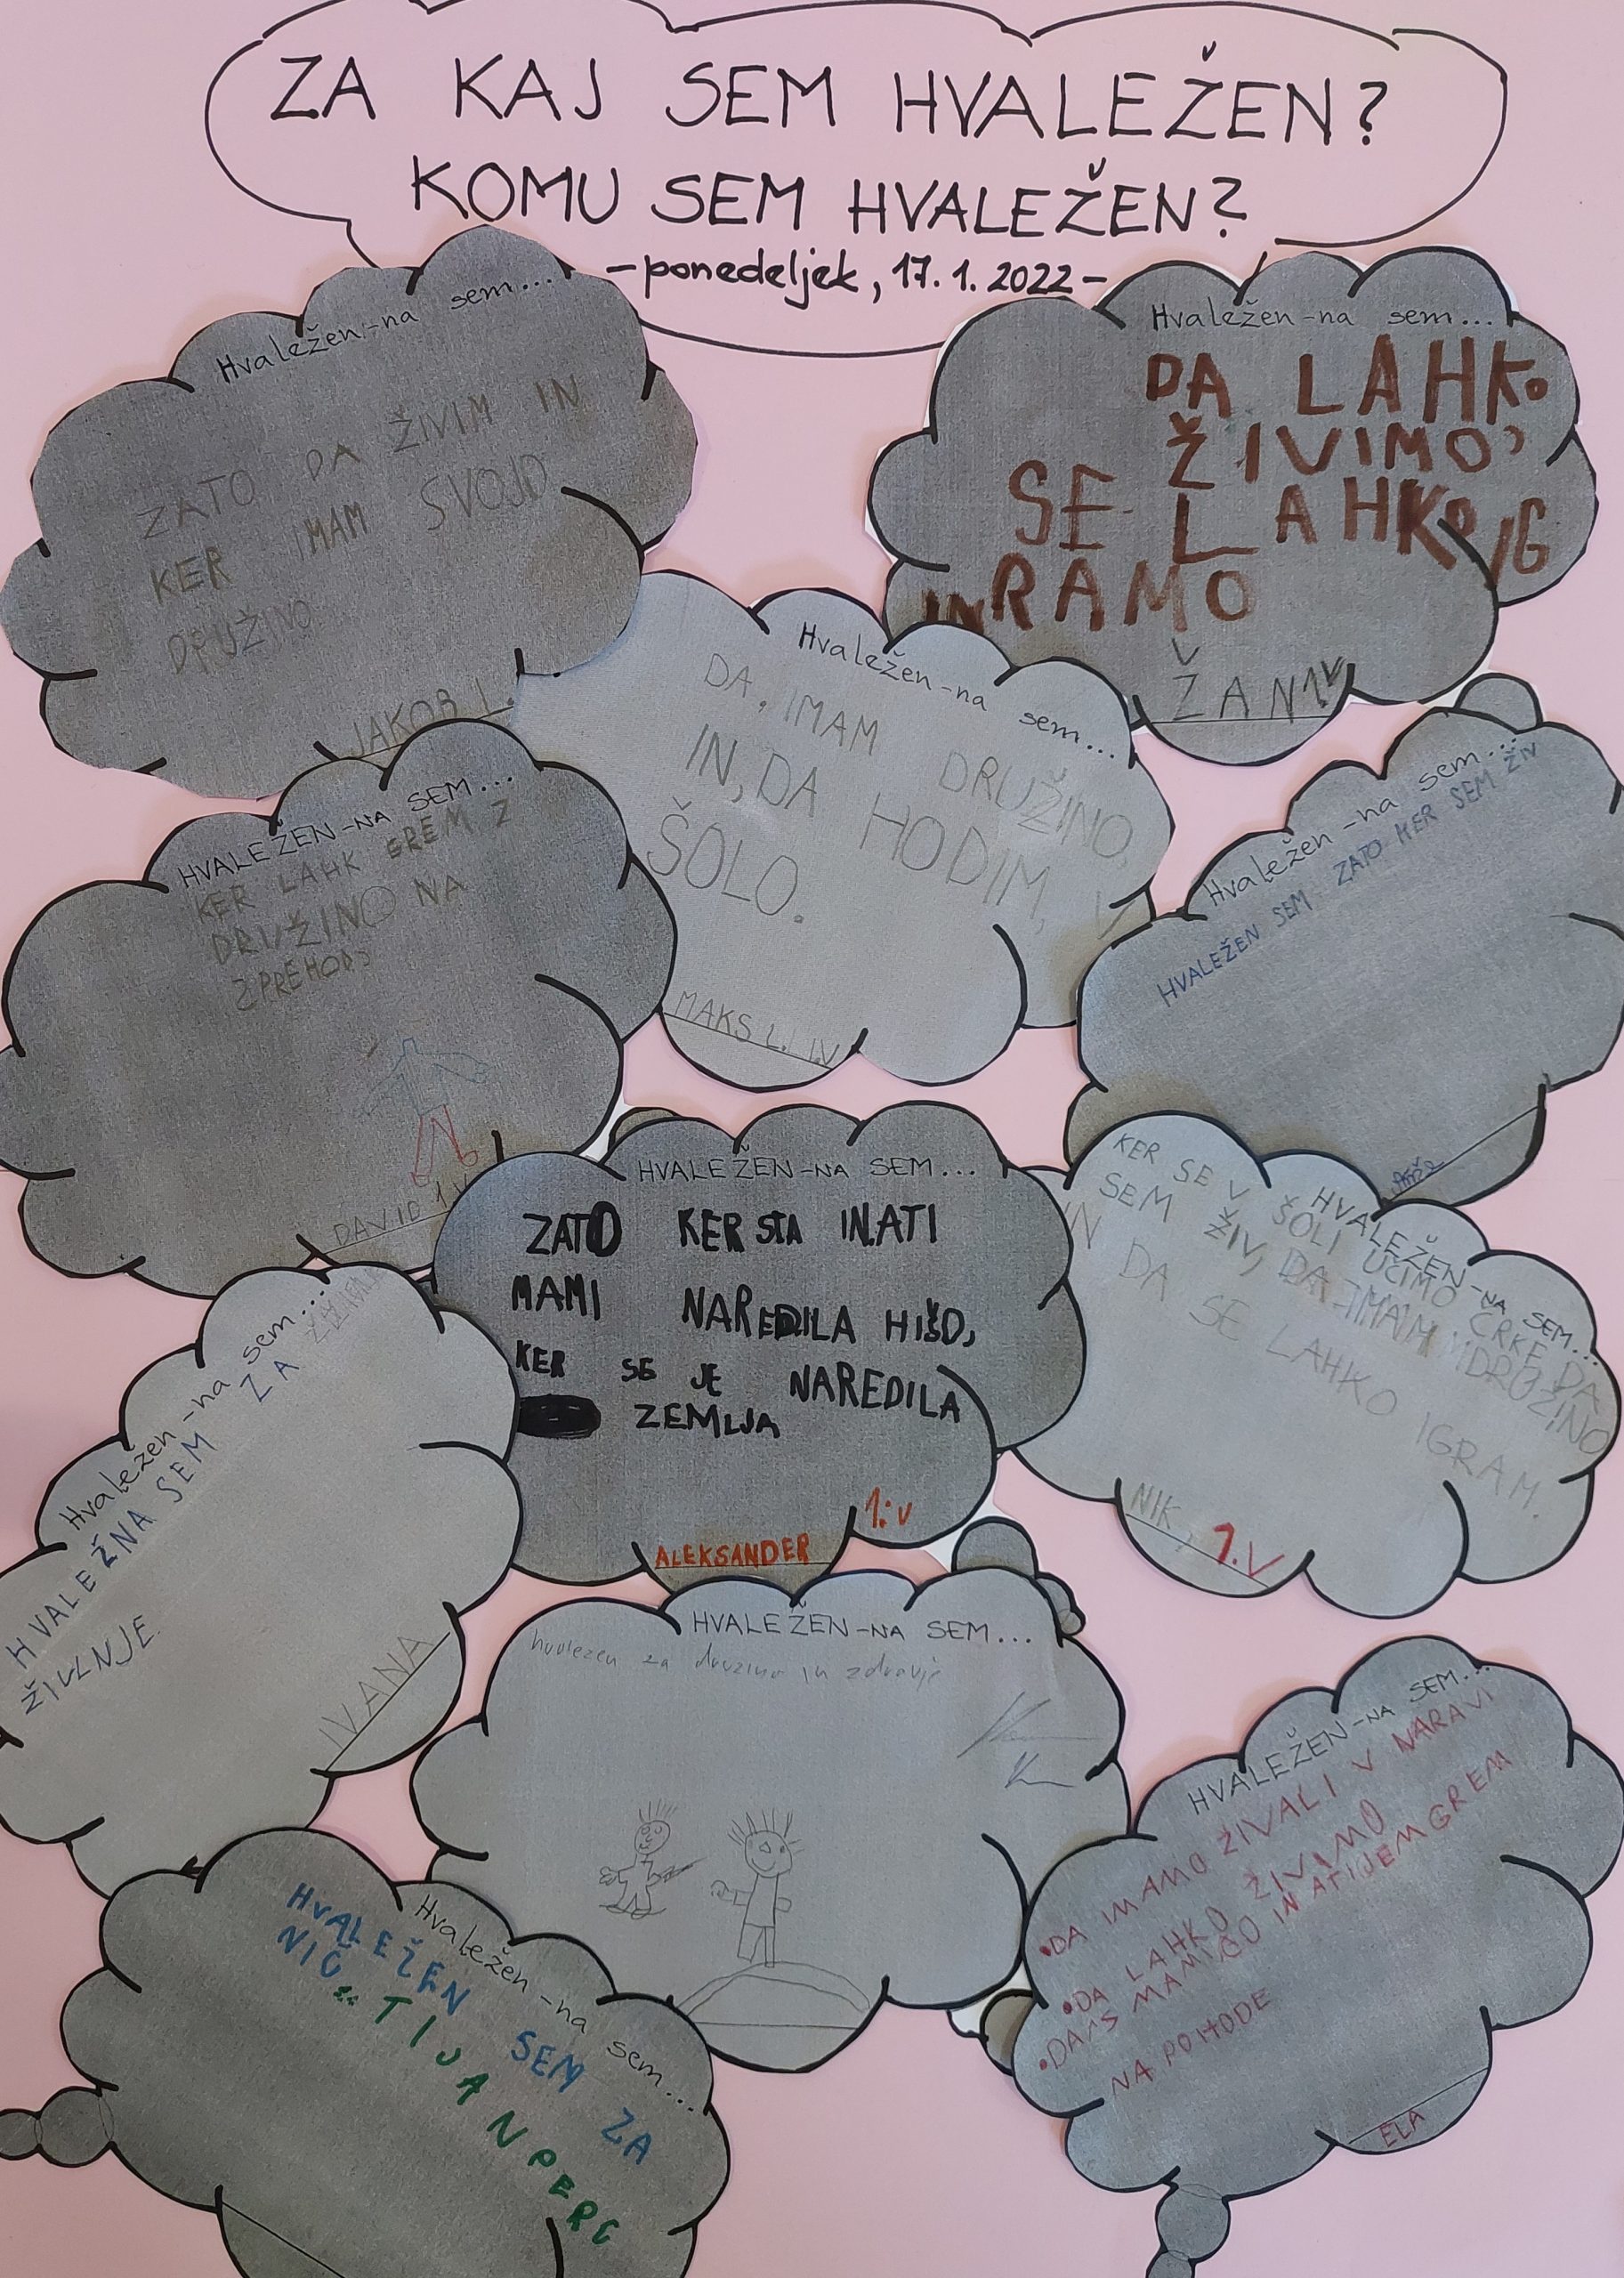 ZA KAJ SEM HVALEŽEN?
KOMU SEM HVALEŽEN?
-ponedeljek, 17. 1. 2022-
Hvaležen-na sem...
ZATO DA ŽIVIM IN
KER IMAM SVOJO
DRUŽINO.
JAKOB L.
Hvaležen-na sem...
DA LAHKO
ŽIVIMO,
SE LAHKO IG
IN RAMO
ŽAN 1.V
Hvaležen-na sem...
DA, IMAM DRUŽINO,
IN, DA HODIM, V
ŠOLO.
MAKS L. 1.V
HVALEŽEN-NA SEM...
KER LAHK GREM Z
DRUŽINO NA
ZPREHOD
DAVID 1.V
Hvaležen-na sem...
HVALEŽEN SEM ZATO KER SEM ŽIV
HVALEŽEN-NA SEM...
ZATO KER STA IN ATI
MAMI NAREDILA HIŠO,
KER SE JE NAREDILA
ZEMLJA
ALEKSANDER 1.V
HVALEŽEN-NA SEM...
KER SE V ŠOLI UČIMO ČRKE DA
SEM ŽIV, DA IMAM DRUŽINO
IN DA SE LAHKO IGRAM.
NIK, 1.V
Hvaležen-na sem...
HVALEŽNA SEM ZA
ŽIVLNJE.
IVANA
HVALEŽEN-NA SEM...
hvalezen za druzino in zdravje
HVALEŽEN-NA SEM...
•DA IMAMO ŽIVALI V NARAVI
•DA LAHKO ŽIVIMO
•DA S MAMICO IN ATIJEM GREM
NA POHODE
ELA
Hvaležen-na sem...
HVALEŽEN SEM ZA
NIČ
TIJAN PERE